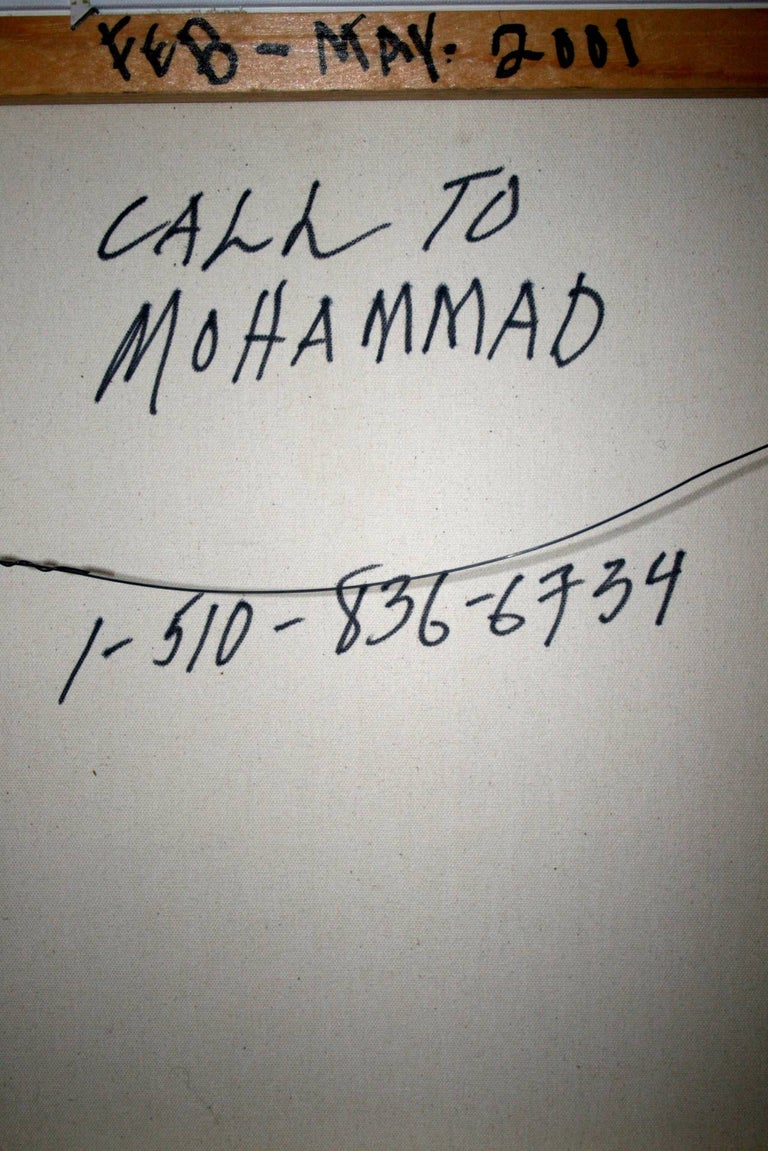 FEB - MAY. 2001
CALL TO
MOHAMMAD
1-510-836-6734